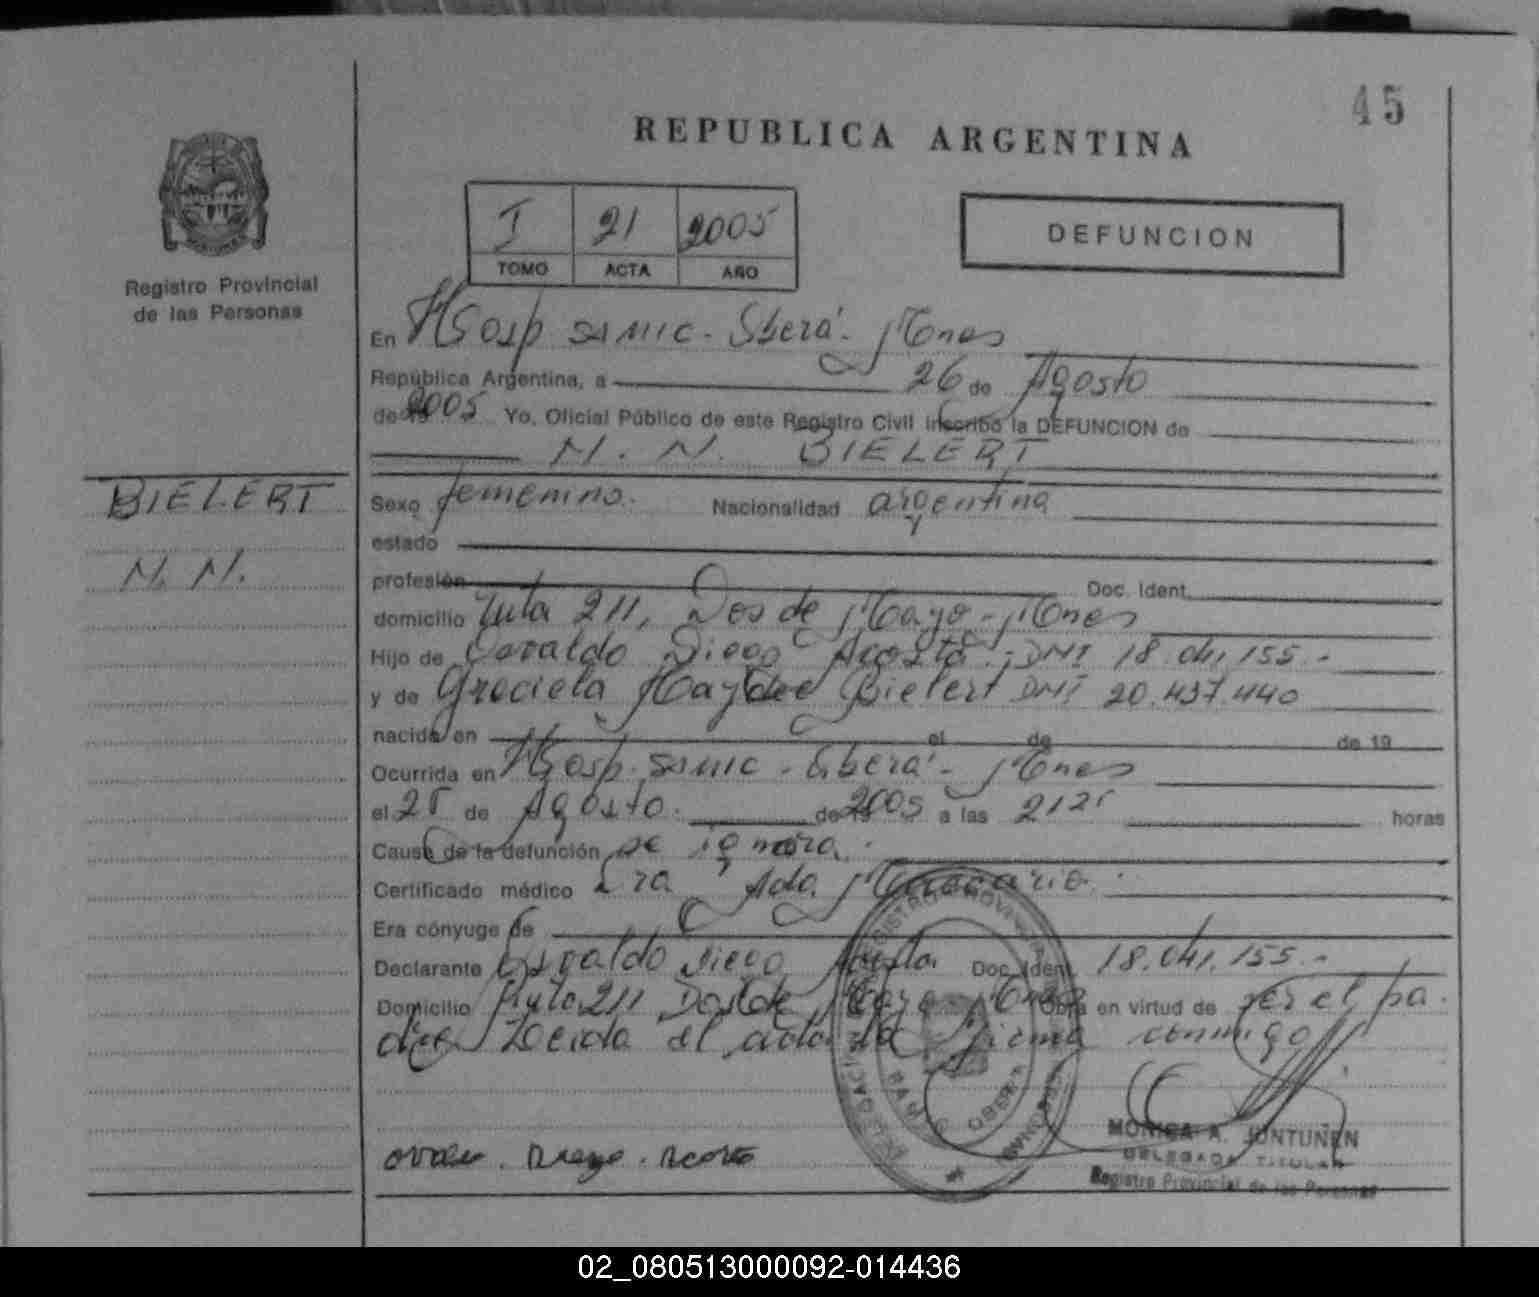 45
REPUBLICA ARGENTINA
I 21 2005
TOMO ACTA AÑO
DEFUNCION
Registro Provincial
de las Personas
En Hosp SAMIC - Oberá - Mnes
República Argentina, a 26 de Agosto
de 19 2005 Yo, Oficial Público de este Registro Civil inscribo la DEFUNCION de
N. N. BIELERT
BIELERT
N. N.
Sexo femenino. Nacionalidad argentina
estado
profesión Doc. Ident.
domicilio Ruta 211, Dos de Mayo - Mnes
Hijo de Osvaldo Diego Acosta - DNI 18.041.155.-
y de Graciela Haydee Bielert DNI 20.437.440
nacida en el de de 19
Ocurrida en Hosp. SAMIC - Oberá - Mnes
el 25 de Agosto. de 19 2005 a las 2125 horas
Causa de la defunción se ignora.
Certificado médico Dra Ada
Era cónyuge de
Declarante Osvaldo Diego Acosta Doc. Ident. 18.041.155.-
Domicilio Ruta 211 Dos de Mayo - Mnes Obra en virtud de ser el pa-
dre Leida el acta la firma conmigo
REGISTRO PROVINCIAL DE LAS PERSONAS
OBERA
MONICA A. JUNTUNEN
DELEGADA TITULAR
Registro Provincial de las Personas
02_080513000092-014436